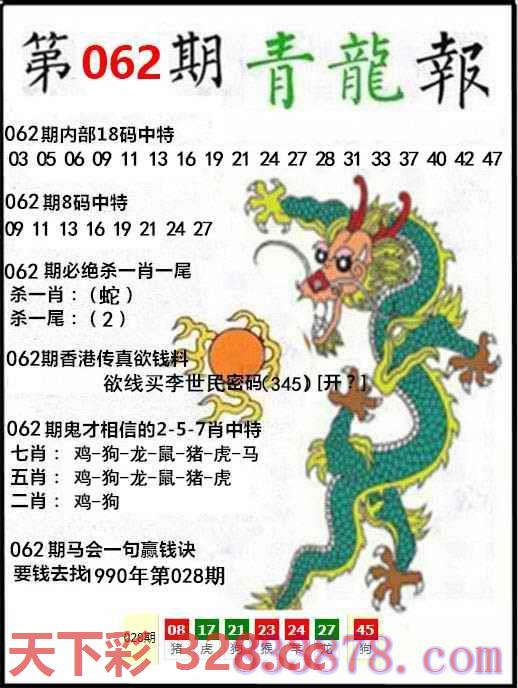 第062期 青龍報
062期内部18码中特
03 05 06 09 11 13 16 19 21 24 27 28 31 33 37 40 42 47
062期8码中特
09 11 13 16 19 21 24 27
062期必绝杀一肖一尾
杀一肖：（蛇）
杀一尾：（2）
062期香港传真欲钱料
欲线买李世民密码(345)[开？]
062期鬼才相信的2-5-7肖中特
七肖： 鸡-狗-龙-鼠-猪-虎-马
五肖： 鸡-狗-龙-鼠-猪-虎
二肖： 鸡-狗
062期马会一句赢钱诀
要钱去找1990年第028期
028期 08 17 21 23 24 27 45
猪 虎 狗 猴 羊 龙 狗
天下彩 328.cc